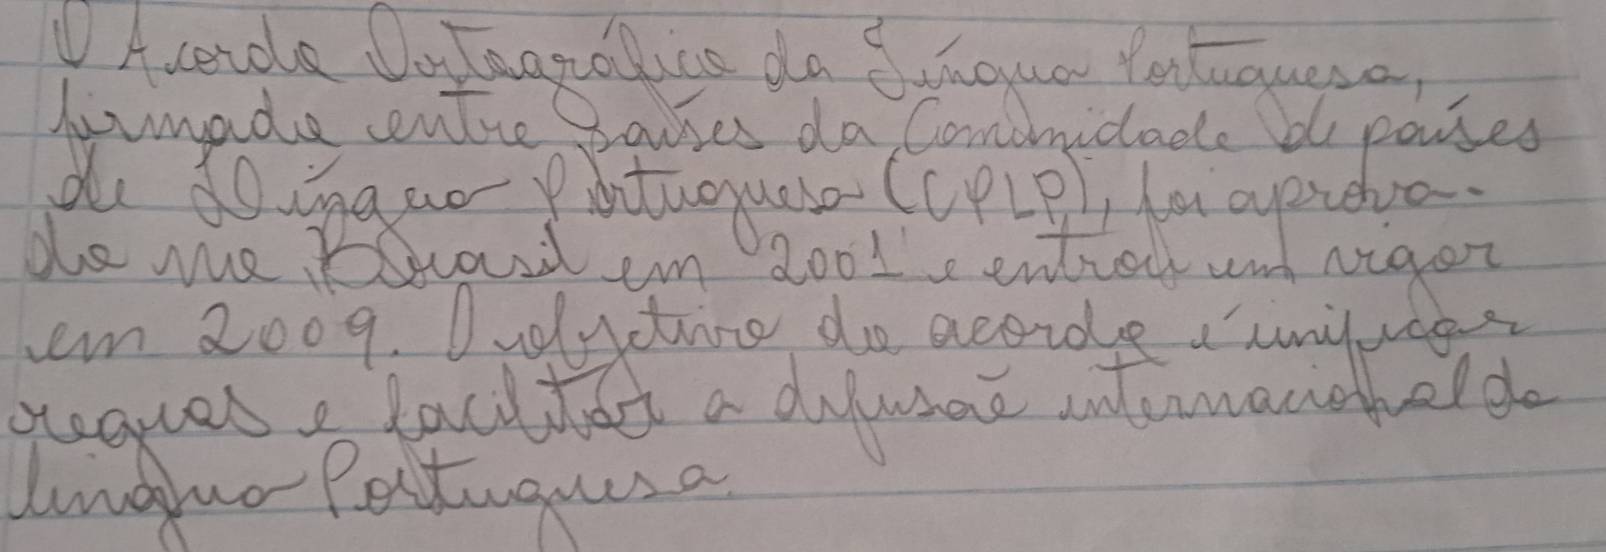 O Acordo Ortográfico da Língua Portuguesa,
firmado entre países da Comunidade de países
de Língua Portuguesa (CPLP), foi aprova-
do no Brasil em 2001 e entrou em vigor
em 2009. O objetivo do acordo é unificar
regras e facilitar a difusão internacional da
língua Portuguesa.